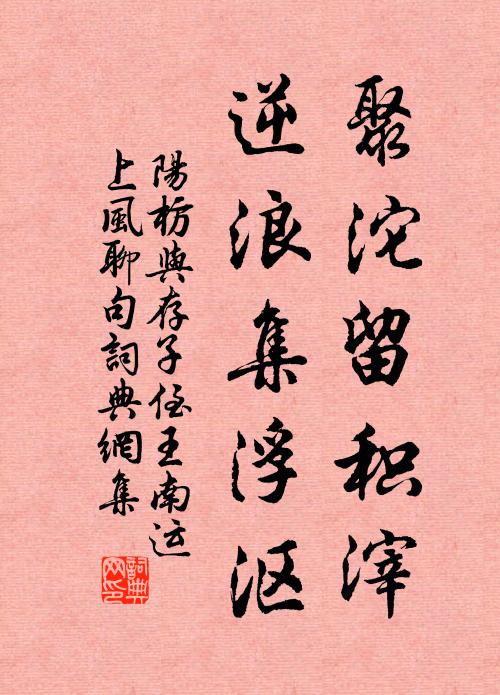 聚沱留积滓
逆浪集浮沤
陽枥與存子侄王南运
上風聊句詞典網集
詞典网印